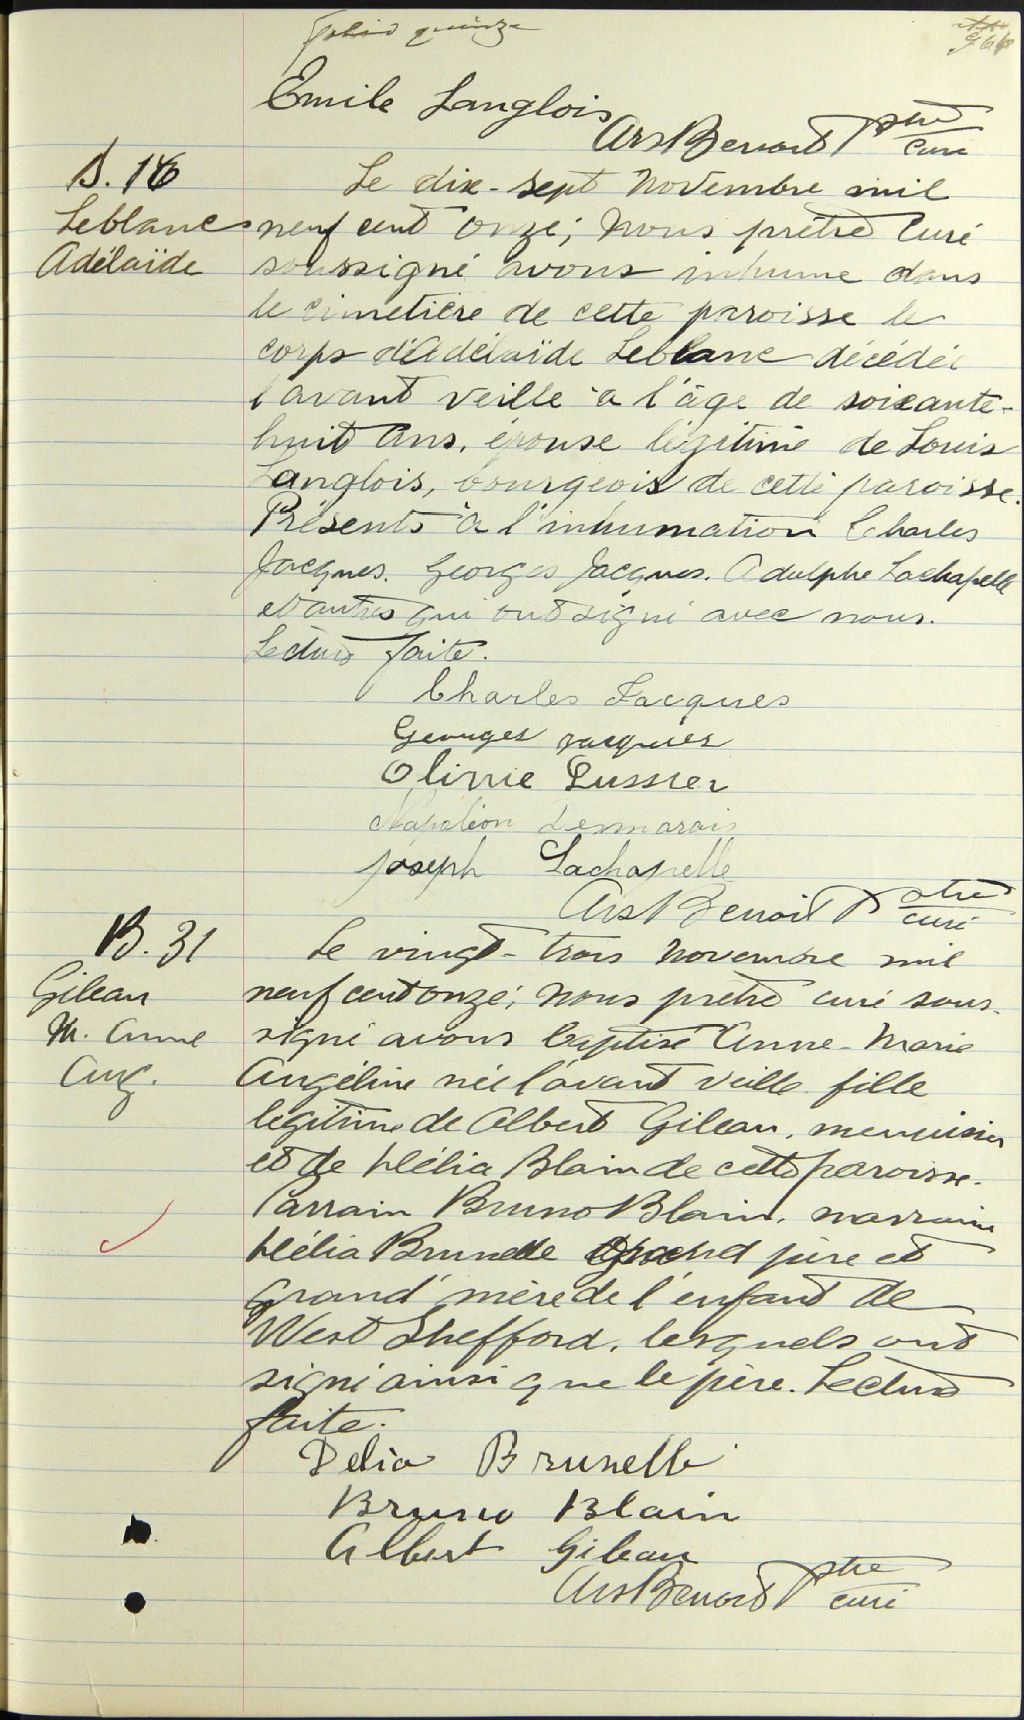 folio quinze
966
Emile Langlois
Ars Benoit Ptre curé
S. 16
Leblanc
Adélaïde
Le dix-sept novembre mil
neuf cent onze; nous prêtre curé
soussigné avons inhumé dans
le cimetière de cette paroisse le
corps d'Adélaïde Leblanc décédée
l'avant veille à l'âge de soixante-
huit ans, épouse légitime de Louis
Langlois, bourgeois de cette paroisse.
Présents à l'inhumation Charles
Jacques. Georges Jacques. Adolphe Lachapelle
et autres qui ont signé avec nous.
Lecture faite.
Charles Jacques
Georges Jacques
Olivie Lussier
Napoléon Desmarais
Joseph Lachapelle
Ars Benoit Ptre curé
B. 31
Gileau
M. Anne
Ang.
Le vingt-trois novembre mil
neuf cent onze; nous prêtre curé sous-
signé avons baptisé Anne-Marie
Angéline née l'avant veille fille
légitime de Albert Gileau, menuisier
et de Délia Blain de cette paroisse.
Parrain Bruno Blain, marraine
Délia Brunelle grand père et
grand'mère de l'enfant de
West Shefford, lesquels ont
signé ainsi que le père. Lecture
faite.
Delia Brunelle
Bruno Blain
Albert Gileau
Ars Benoit Ptre curé